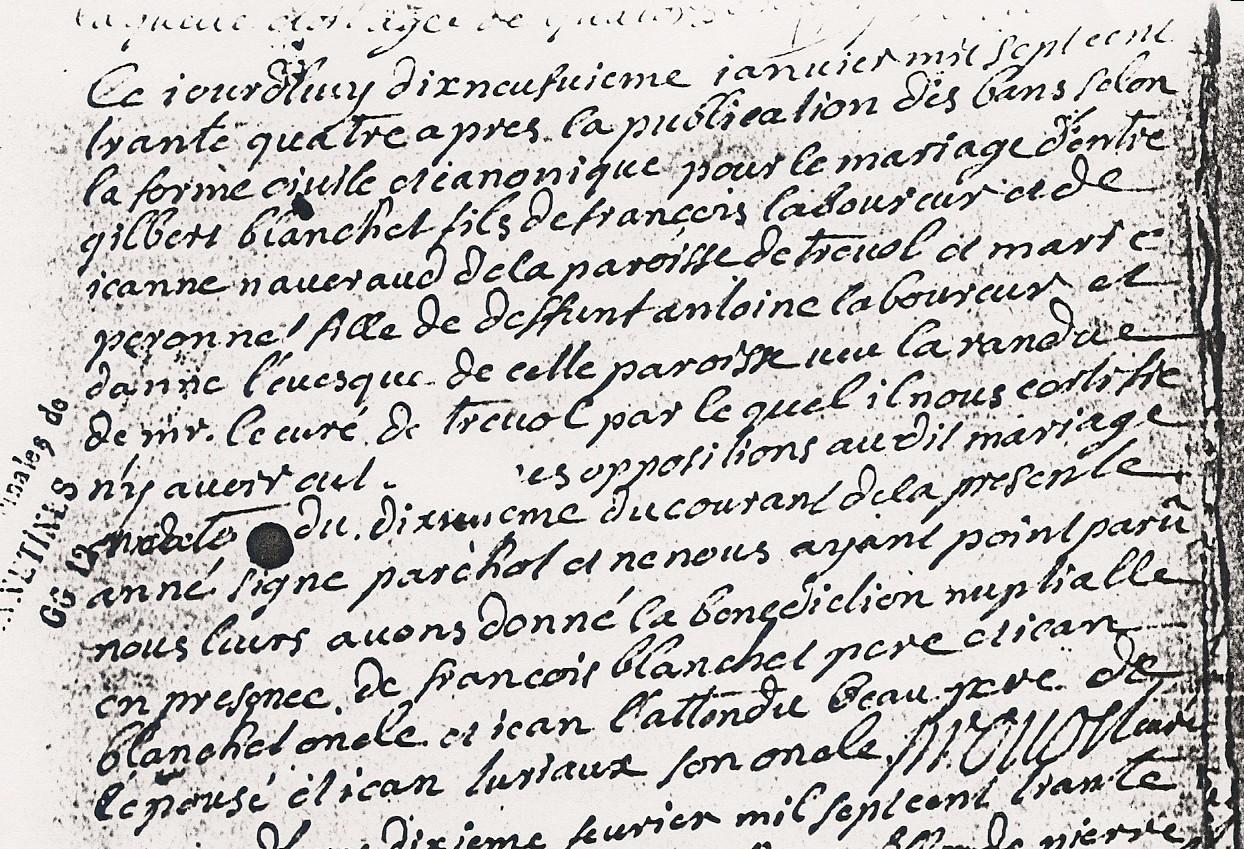 laquelle est agee de quatorse
Ce iourdhuy dixneufuieme ianuier mil sept cent
trante quatre apres la publication des bans selon
la forme ciuile et canonique pour le mariage d'entre
gilbert blanchet fils de françois laboureur et de
ieanne naueraud de la paroisse de treuol et marie
peronnel fille de deffunt antoine laboureur et
d'anne l'euesque de celle paroisse ueu la randue
de mr. le curé de treuol par le quel il nous certifie
n'y auoir aul es oppositions au dit mariage
du courant de la presente
anné signe paréhot et ne nous ayant point parû
nous leurs auons donné la benediction nuptialle
en presence de françois blanchet pere et iean
blanchet oncle et iean l'attendu beau pere de
l'epousé et iean luriaux son oncle curé
dixieme feurier mil sept cent trante
pierre
inales de
GG 12